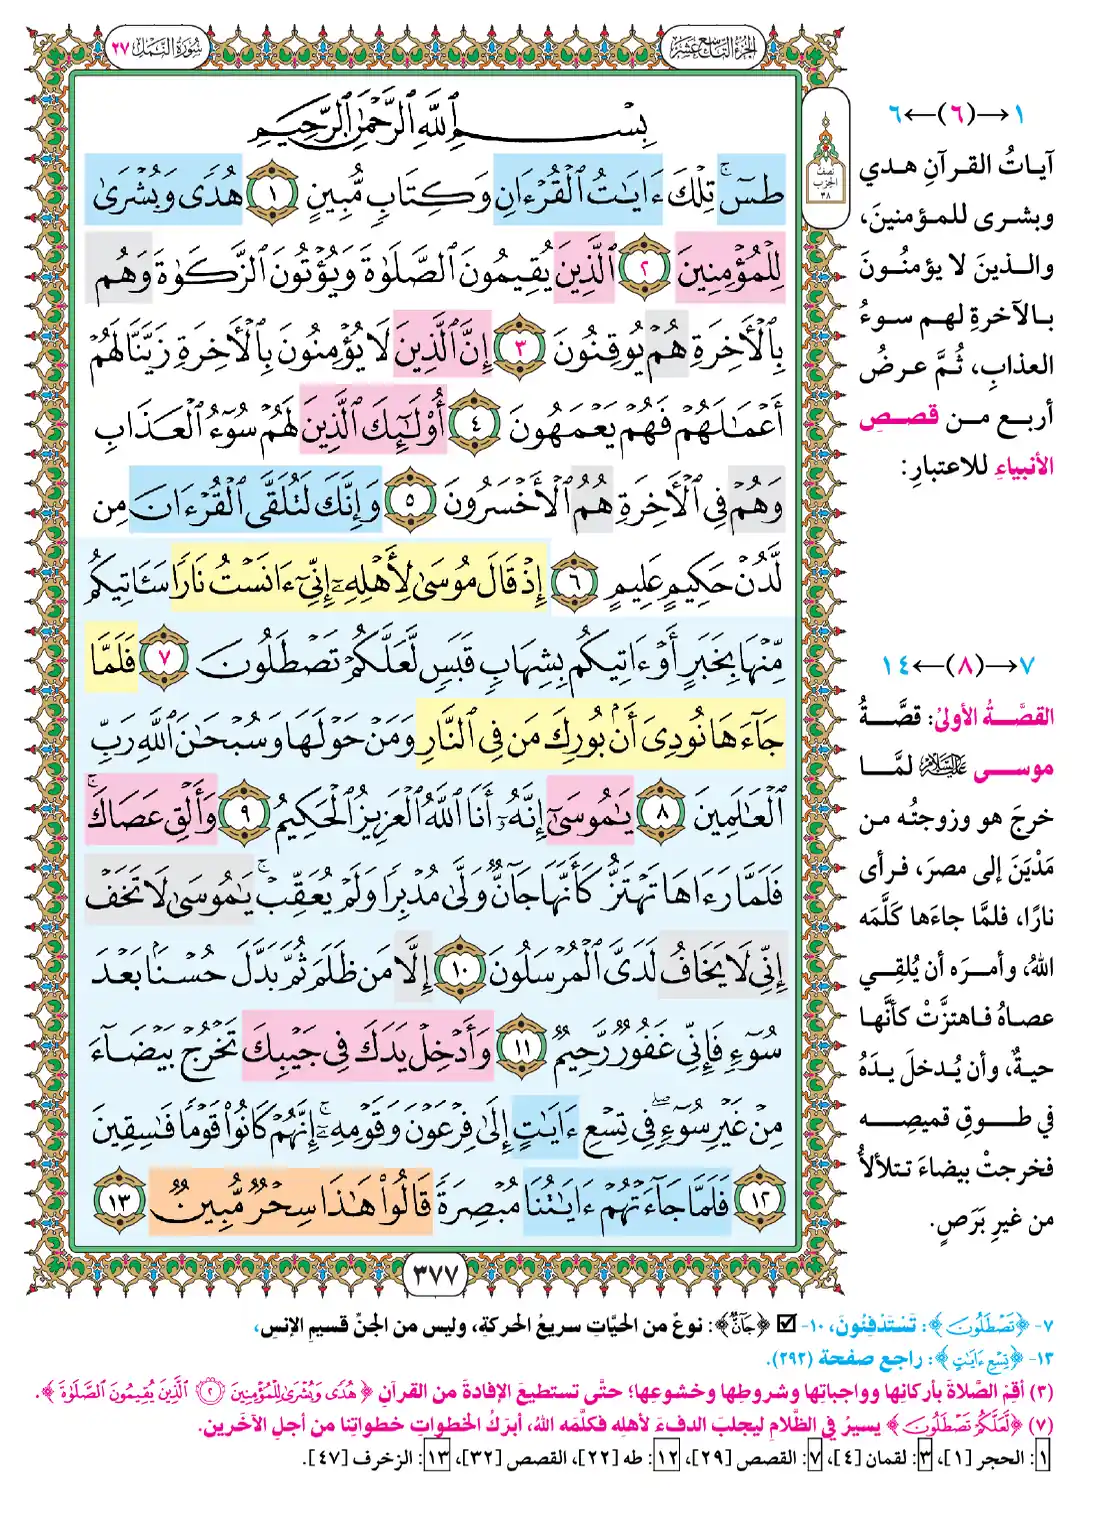 الجزء التاسع عشر
سورة النمل ٢٧
نصف الحزب ٣٨
بِسْمِ ٱللَّهِ ٱلرَّحْمَٰنِ ٱلرَّحِيمِ
طسٓ ۚ تِلْكَ ءَايَٰتُ ٱلْقُرْءَانِ وَكِتَابٍ مُّبِينٍ ١ هُدًى وَبُشْرَىٰ
لِلْمُؤْمِنِينَ ٢ ٱلَّذِينَ يُقِيمُونَ ٱلصَّلَوٰةَ وَيُؤْتُونَ ٱلزَّكَوٰةَ وَهُم
بِٱلْأَخِرَةِ هُمْ يُوقِنُونَ ٣ إِنَّ ٱلَّذِينَ لَا يُؤْمِنُونَ بِٱلْأَخِرَةِ زَيَّنَّا لَهُمْ
أَعْمَٰلَهُمْ فَهُمْ يَعْمَهُونَ ٤ أُو۟لَٰٓئِكَ ٱلَّذِينَ لَهُمْ سُوٓءُ ٱلْعَذَابِ
وَهُمْ فِى ٱلْأَخِرَةِ هُمُ ٱلْأَخْسَرُونَ ٥ وَإِنَّكَ لَتُلَقَّى ٱلْقُرْءَانَ مِن
لَّدُنْ حَكِيمٍ عَلِيمٍ ٦ إِذْ قَالَ مُوسَىٰ لِأَهْلِهِۦٓ إِنِّىٓ ءَانَسْتُ نَارًا سَـَٔاتِيكُم
مِّنْهَا بِخَبَرٍ أَوْ ءَاتِيكُم بِشِهَابٍ قَبَسٍ لَّعَلَّكُمْ تَصْطَلُونَ ٧ فَلَمَّا
جَآءَهَا نُودِىَ أَنۢ بُورِكَ مَن فِى ٱلنَّارِ وَمَنْ حَوْلَهَا وَسُبْحَٰنَ ٱللَّهِ رَبِّ
ٱلْعَٰلَمِينَ ٨ يَٰمُوسَىٰٓ إِنَّهُۥٓ أَنَا ٱللَّهُ ٱلْعَزِيزُ ٱلْحَكِيمُ ٩ وَأَلْقِ عَصَاكَ ۚ
فَلَمَّا رَءَاهَا تَهْتَزُّ كَأَنَّهَا جَآنٌّ وَلَّىٰ مُدْبِرًا وَلَمْ يُعَقِّبْ ۚ يَٰمُوسَىٰ لَا تَخَفْ
إِنِّى لَا يَخَافُ لَدَىَّ ٱلْمُرْسَلُونَ ١٠ إِلَّا مَن ظَلَمَ ثُمَّ بَدَّلَ حُسْنًۢا بَعْدَ
سُوٓءٍ فَإِنِّى غَفُورٌ رَّحِيمٌ ١١ وَأَدْخِلْ يَدَكَ فِى جَيْبِكَ تَخْرُجْ بَيْضَآءَ
مِنْ غَيْرِ سُوٓءٍ ۖ فِى تِسْعِ ءَايَٰتٍ إِلَىٰ فِرْعَوْنَ وَقَوْمِهِۦٓ ۚ إِنَّهُمْ كَانُوا۟ قَوْمًا فَٰسِقِينَ
١٢ فَلَمَّا جَآءَتْهُمْ ءَايَٰتُنَا مُبْصِرَةً قَالُوا۟ هَٰذَا سِحْرٌ مُّبِينٌ ١٣
٣٧٧
١→(٦)←٦
آياتُ القرآنِ هدي
وبشرى للمؤمنينَ،
والذينَ لا يؤمنُونَ
بالآخرةِ لهم سوءُ
العذابِ، ثُمَّ عرضُ
أربع من قصصِ
الأنبياءِ للاعتبارِ:
٧→(٨)←١٤
القصَّةُ الأولىُ: قصَّةُ
موسى عليه السلام لمَّا
خرجَ هو وزوجتُه من
مَدْيَنَ إلى مصرَ، فرأى
نارًا، فلمَّا جاءَها كَلَّمَه
اللهُ، وأمرَه أن يُلقِي
عصاهُ فاهتزَّتْ كأنَّها
حيةٌ، وأن يُدخلَ يدَهُ
في طوقِ قميصِه
فخرجتْ بيضاءَ تتلألأُ
من غيرِ بَرَصٍ.
٧- ﴿تَصْطَلُونَ﴾: تَسْتَدْفِئُونَ، ١٠- ☑ ﴿جَآنٌّ﴾: نوعٌ من الحيَّاتِ سريعُ الحركةِ، وليس من الجنِّ قسيمِ الإنسِ،
١٣- ﴿تِسْعِ ءَايَٰتٍ﴾: راجع صفحة (٢٩٢).
(٣) أقِمِ الصَّلاةَ بأركانِها وواجباتِها وشروطِها وخشوعِها؛ حتَّى تستطيعَ الإفادةَ من القرآنِ ﴿هُدًى وَبُشْرَىٰ لِلْمُؤْمِنِينَ ٢ ٱلَّذِينَ يُقِيمُونَ ٱلصَّلَوٰةَ﴾.
(٧) ﴿لَّعَلَّكُمْ تَصْطَلُونَ﴾ يسيرُ في الظَّلامِ ليجلبَ الدفءَ لأهلِه فكلَّمَه اللهُ، أبرَكُ الخطواتِ خطواتِنا من أجلِ الآخَرين.
١: الحجر [١]، ٣: لقمان [٤]، ٧: القصص [٢٩]، ١٢: طه [٢٢]، القصص [٣٢]، ١٣: الزخرف [٤٧].